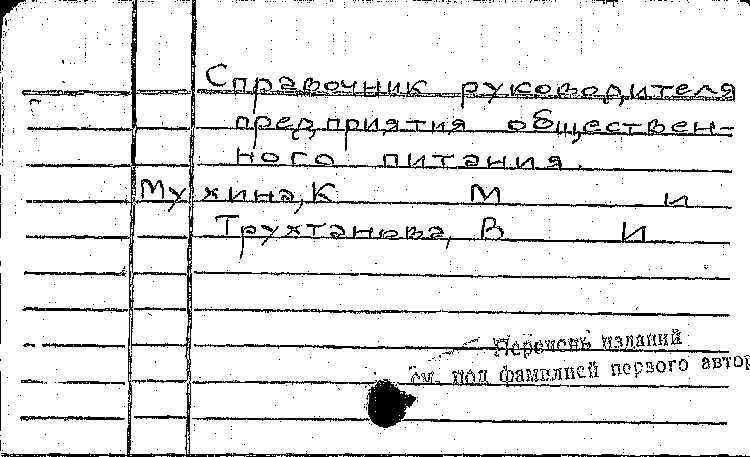 Справочник руководителя
предприятия обществен-
ного питания.
Мухина, К М и
Трухтанова, В И
Перечень изданий
см. под фамилией первого автор